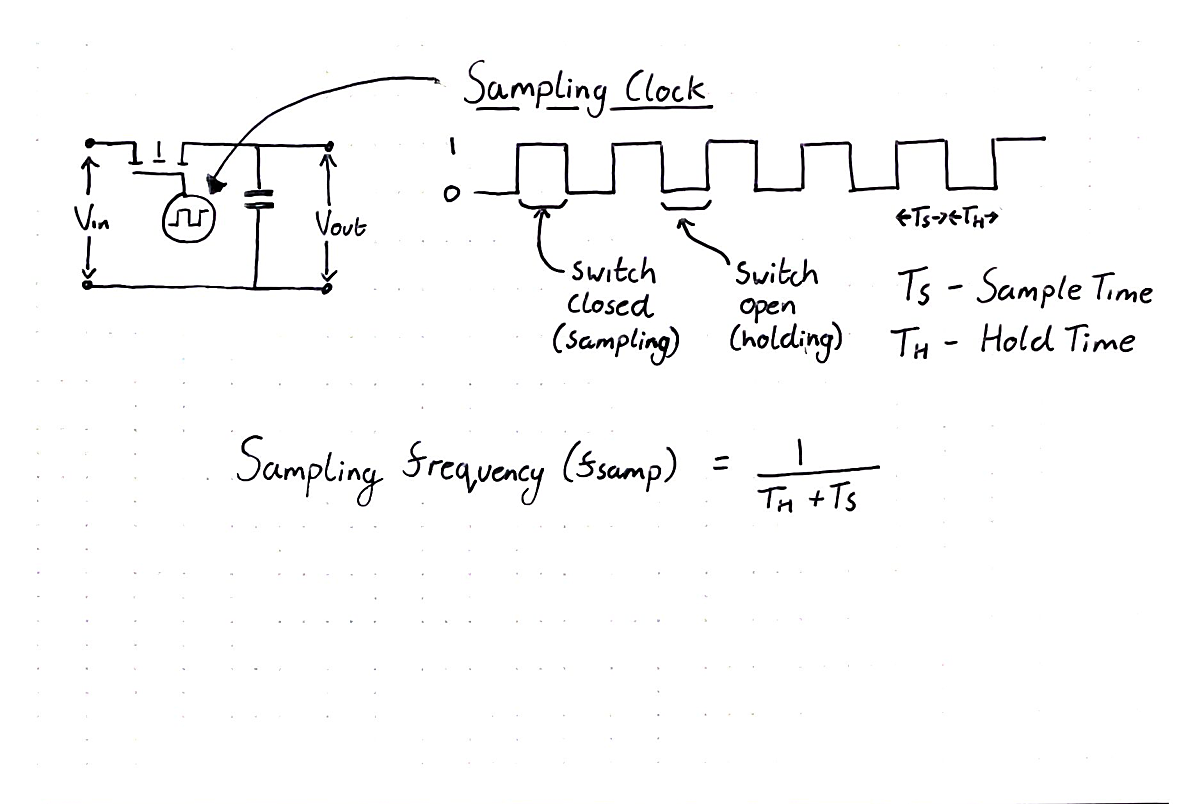 Sampling Clock
1
0
Vin
Vout
Ts
TH
Switch
closed
(sampling)
Switch
open
(holding)
Ts - Sample Time
TH - Hold Time
Sampling frequency (fsamp) = 1
TH + Ts